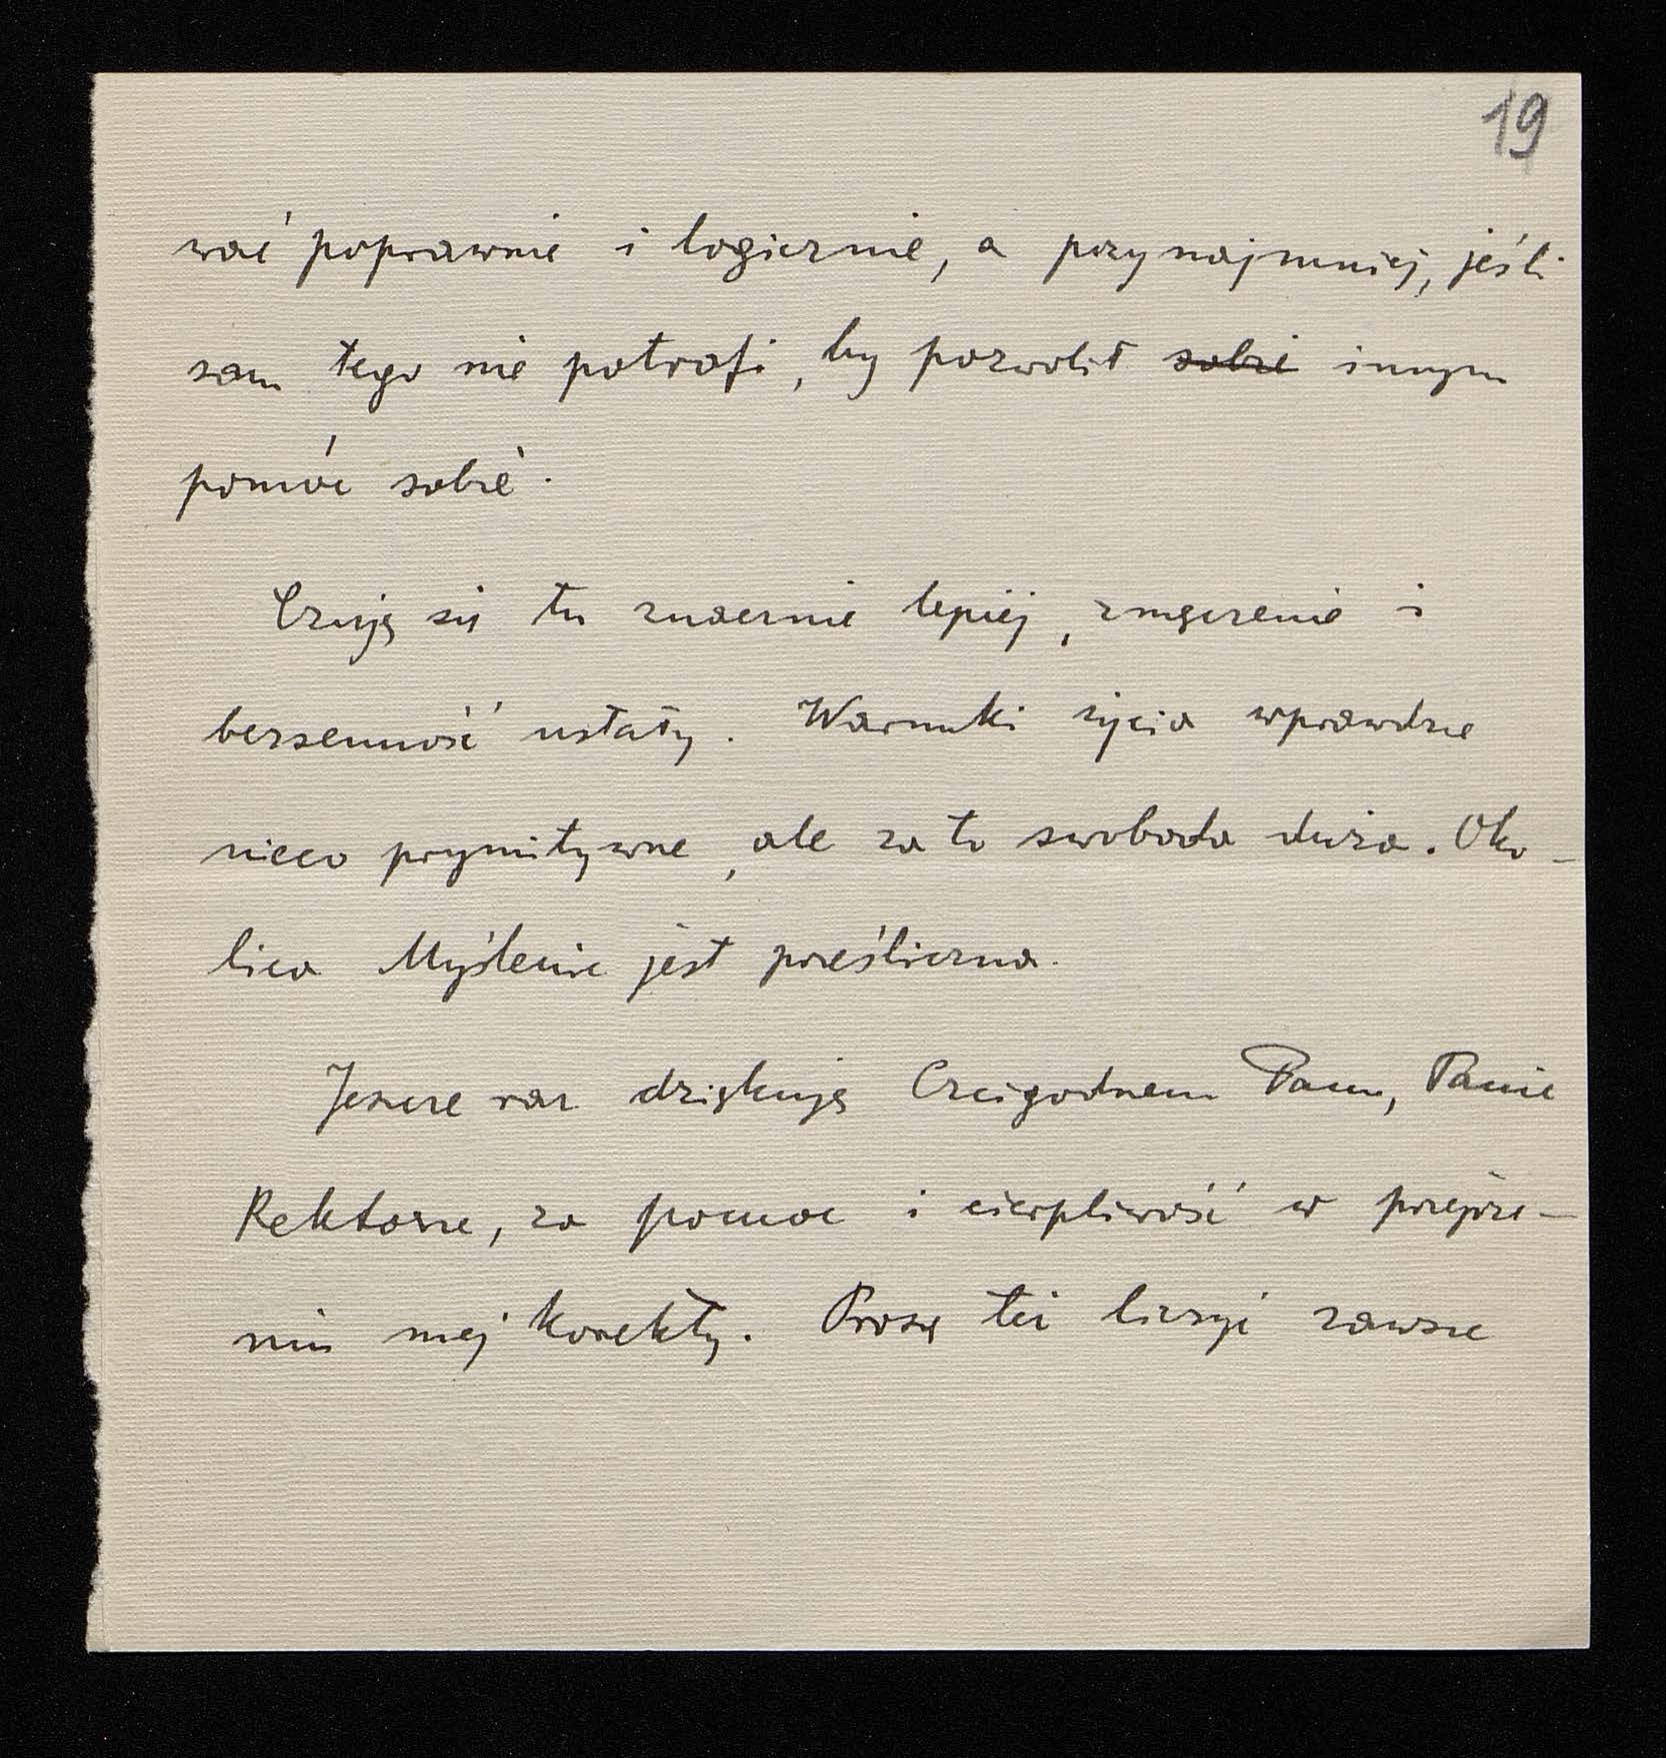 19
wać poprawnie i logicznie, a przynajmniej, jeśli
sam tego nie potrafi, by pozwolił sobie innym
pomóc sobie.
Czuję się tu znacznie lepiej, zmęczenie i
bezsenność ustały. Warunki życia wprawdzie
nieco prymitywne, ale za to swoboda duża. Oko-
lica Myślenic jest prześliczna.
Jeszcze raz dziękuję Czcigodnem Panu, Panie
Rektorze, za pomoc i cierpliwość w przejrze-
niu mej korekty. Proszę też liczyć zawsze